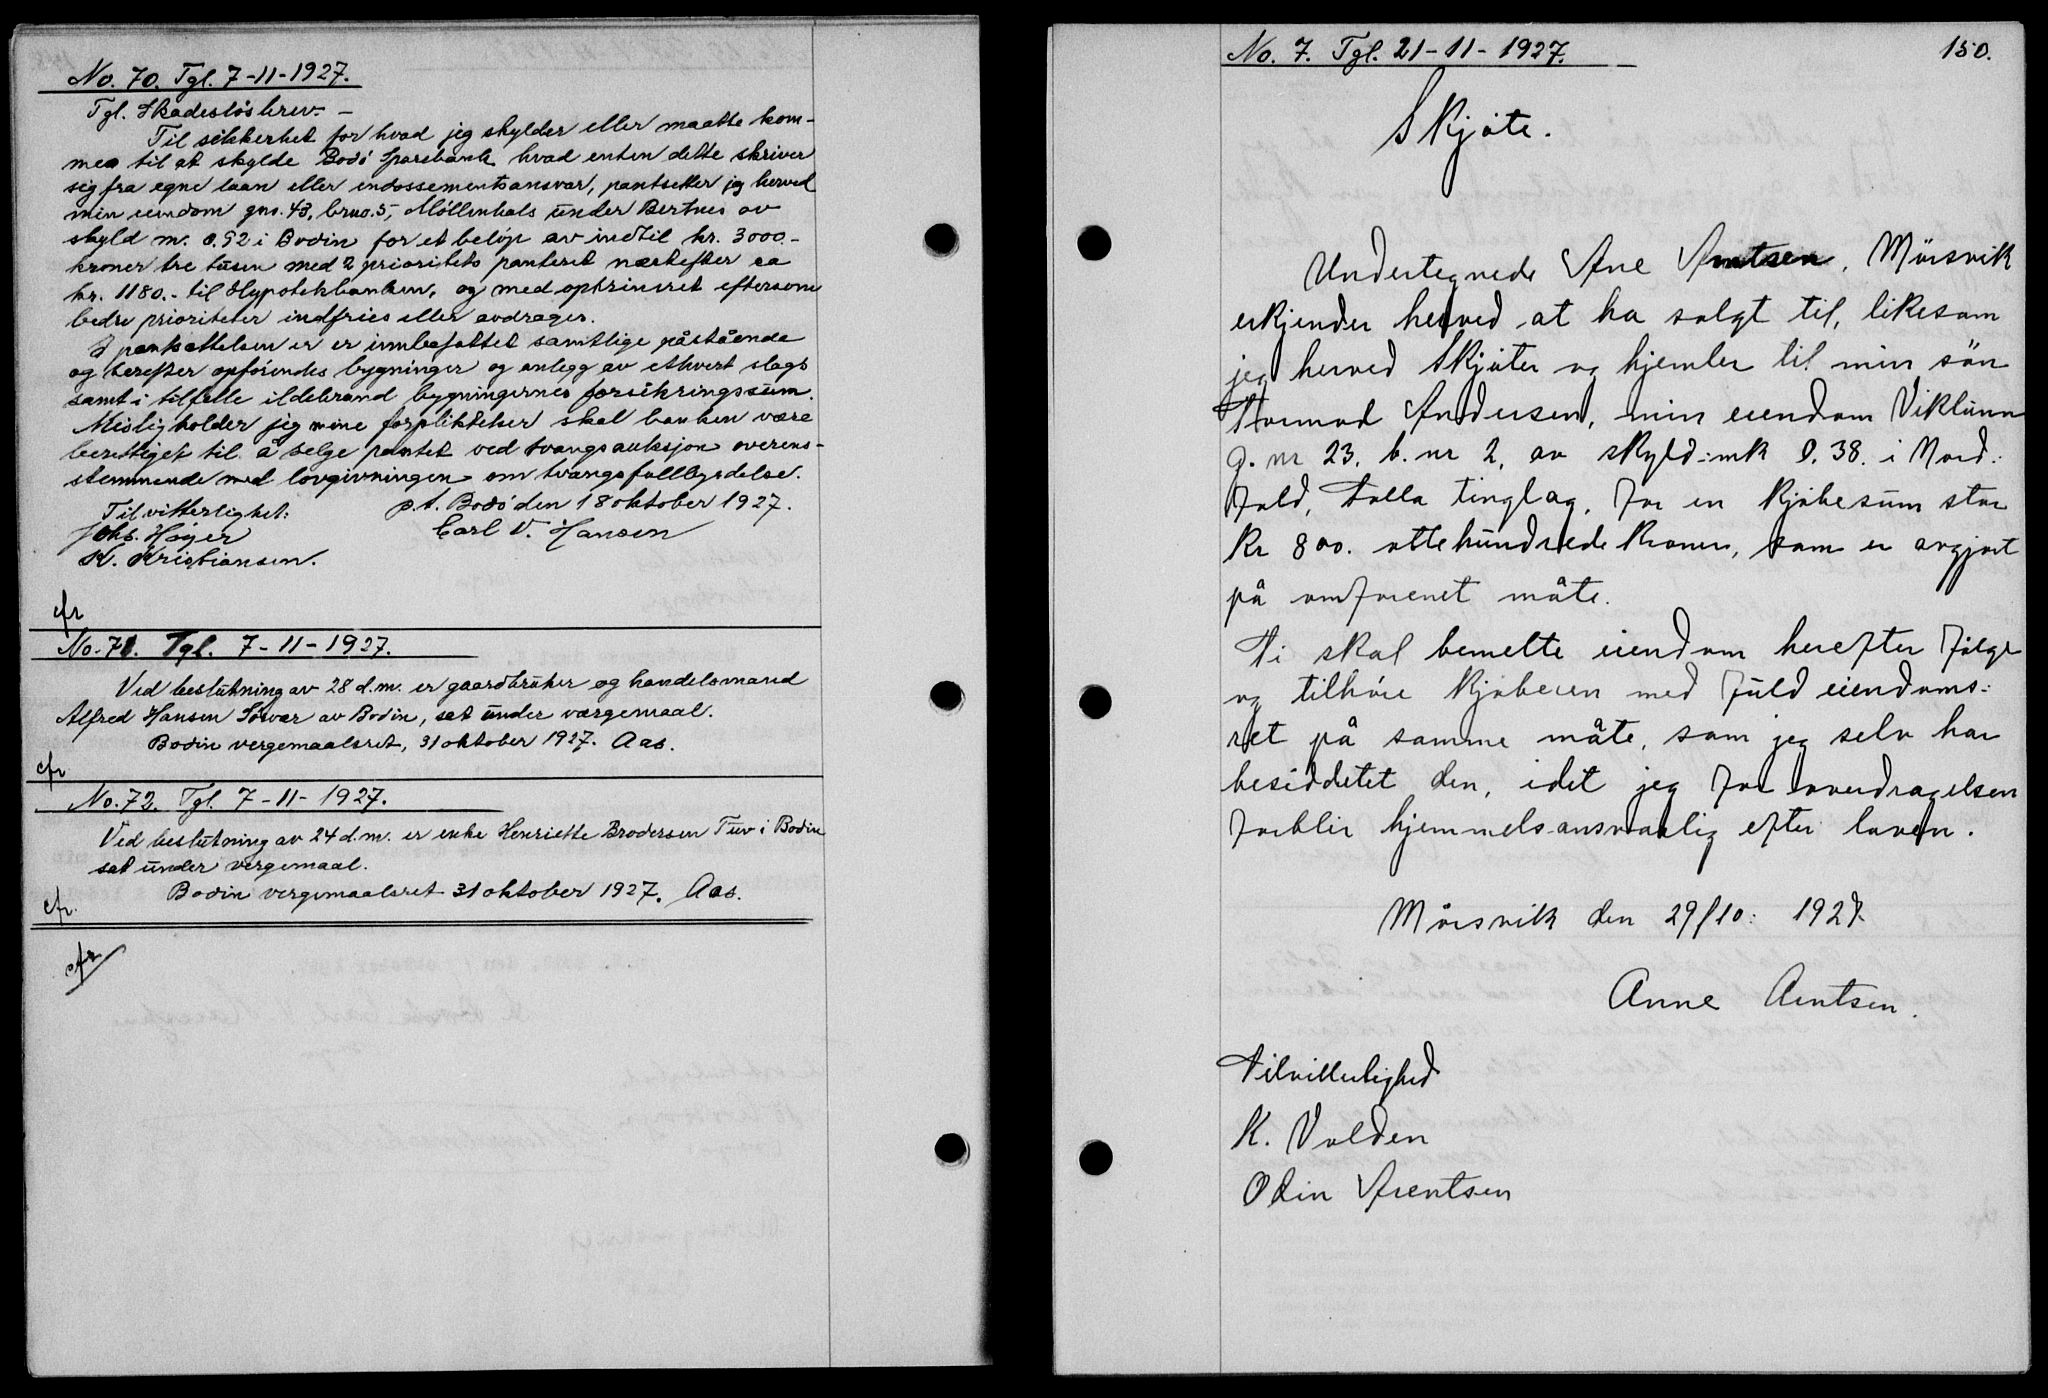 No. 70. Tgl. 7-11-1927.
Tgl. Skadesløsbrev. -
Til sikkerhet for hvad jeg skylder eller maatte kom-
me til at skylde Bodö Sparebank hvad enten dette skriver
sig fra egne laan eller endossementsansvar, pantsetter jeg herved
min eiendom gno. 43, bruo. 5, Möllenhals under Bertnes av
skyld m. 0.92 i Bodin for et belöp av indtil kr. 3000.-
kroner tre tusen med 2 prioritets panteret næstefter ca
kr. 1180.- til Hypotekbanken, og med optrinsret eftersom
bedre prioriteter indfries eller avdrages.
I pantsettelsen er er innbefattet samtlige påstående
og herefter opförendes bygninger og anlegg av ethvert slags
samt i tilfelle ildebrand bygningernes forsikringssum.
Misligholder jeg mine forpliktelser skal banken være
berettiget til å selge pantet ved tvangsauksjon overens-
stemmende med lovgivningen om tvangsfullbyrdelse.
p.t. Bodö den 18 oktober 1927.
Til vitterlighet:
Carl V. Hansen
Johs. Høyer
K. Kristiansen.
cfr
No. 71. Tgl. 7-11-1927.
Ved beslutning av 28 d.m. er gaardbruker og handelsmand
Alfred Hansen Löver av Bodin, sat underværgemaal.
Bodin vergemaalsret, 31 oktober 1927. Aas.
cfr
No. 72. Tgl. 7-11-1927.
Ved beslutning av 24 d.m. er enke Henriette Brodersen Tuv i Bodin
sat under vergemaal.
Bodin vergemaalsret 31 oktober 1927. Aas.
cfr.
cfr
No. 7. Tgl. 21-11-1927.
150.
Skjöte.
Undertegnede Ane Arntsen, Mörsvik
erkjender herved at ha solgt til, likesom
jeg herved Skjöter og hjemler til min sön
Tormod Andersen, min eiendom Viklunn
g. nr 23. b. nr 2, av skyld: mk 0.38. i Nord:
fold, Folla tinglag, for en kjöbesum stor
Kr 800. ottehundrede kroner, som er avgjort
på omforenet måte.
Ti skal bemelte eiendom herefter fölge
og tilhöre kjöberen med fuld eiendoms:
ret på samme måte, som jeg selv har
besiddetet den, idet jeg for overdragelsen
forblir hjemmels-ansvarlig efter loven.
Mörsvik den 29/10: 1927.
Anne Arntsen.
Tilvitterlighed
K. Volden
Odin Arentsen